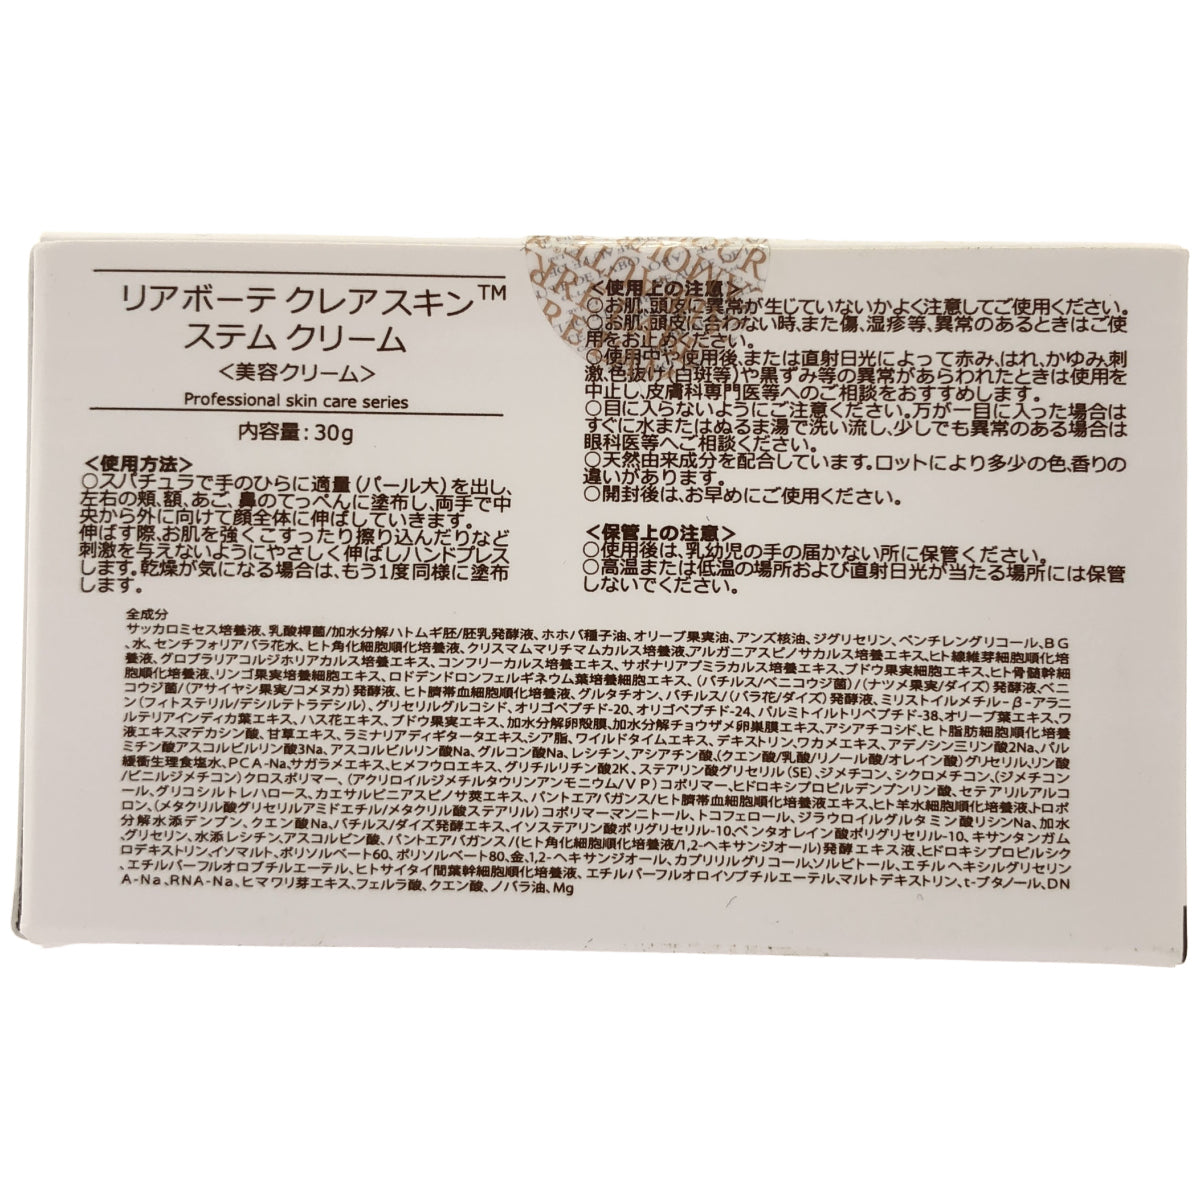 リアボーテ クレアスキン™
ステム クリーム
＜美容クリーム＞
Professional skin care series
内容量：30g
＜使用方法＞
○スパチュラで手のひらに適量（パール大）を出し、
左右の頬、額、あご、鼻のてっぺんに塗布し、両手で中
央から外に向けて顔全体に伸ばしていきます。
伸ばす際、お肌を強くこすったり擦り込んだりなど
刺激を与えないようにやさしく伸ばしハンドプレス
します。乾燥が気になる場合は、もう1度同様に塗布
します。
＜使用上の注意＞
○お肌、頭皮に異常が生じていないかよく注意してご使用ください。
○お肌、頭皮に合わない時、また傷、湿疹等、異常のあるときはご使
用をお止めください。
○使用中や使用後、または直射日光によって赤み、はれ、かゆみ、刺
激、色抜け（白斑等）や黒ずみ等の異常があらわれたときは使用を
中止し、皮膚科専門医等へのご相談をおすすめします。
○目に入らないようにご注意ください。万が一目に入った場合は
すぐに水またはぬるま湯で洗い流し、少しでも異常のある場合は
眼科医等へご相談ください。
○天然由来成分を配合しています。ロットにより多少の色、香りの
違いがあります。
○開封後は、お早めにご使用ください。
＜保管上の注意＞
○使用後は、乳幼児の手の届かない所に保管ください。
○高温または低温の場所および直射日光が当たる場所には保管
しないでください。
全成分
サッカロミセス培養液、乳酸桿菌/加水分解ハトムギ胚/胚乳発酵液、ホホバ種子油、オリーブ果実油、アンズ核油、ジグリセリン、ペンチレングリコール、BG
、水、センチフォリアバラ花水、ヒト角化細胞順化培養液、クリスマムマリチマムカルス培養液、アルガニアスピノサカルス培養エキス、ヒト線維芽細胞順化培
養液、グロブラリアコルジホリアカルス培養エキス、コンフリーカルス培養エキス、サポナリアプミラカルス培養エキス、ブドウ果実細胞エキス、ヒト骨髄幹細
胞順化培養液、リンゴ果実培養細胞エキス、ロドデンドロンフェルギネウム葉培養細胞エキス、（バチルス/ベニコウジ菌）/（ナツメ果実/ダイズ）発酵液、ベニ
コウジ菌/（アサイヤシ果実/コメヌカ）発酵液、ヒト臍帯血細胞順化培養液、グルタチオン、バチルス/（バラ花/ダイズ）発酵液、ミリストイルメチル-β-アラニ
ン（フィトステリル/デシルテトラデシル）、グリセリルグルコシド、オリゴペプチド-20、オリゴペプチド-24、パルミトイルトリペプチド-38、オリーブ葉エキス、ワ
ルテリアインディカ葉エキス、ハス花エキス、ブドウ果実エキス、加水分解卵殻膜、加水分解チョウザメ卵巣膜エキス、アシアチコシド、ヒト脂肪細胞順化培養
液エキスマデカシン酸、甘草エキス、ラミナリアディギタータエキス、シア脂、ワイルドタイムエキス、デキストリン、ワカメエキス、アデノシン三リン酸2Na、パル
ミチン酸アスコルビルリン酸3Na、アスコルビルリン酸Na、グルコン酸Na、レシチン、アシアチン酸、（クエン酸/乳酸/リノール酸/オレイン酸）グリセリル、リン酸
緩衝生理食塩水、PCA-Na、サガラメエキス、ヒメフウロエキス、グリチルリチン酸2K、ステアリン酸グリセリル（SE）、ジメチコン、シクロメチコン、（ジメチコン
/ビニルジメチコン）クロスポリマー、（アクリロイルジメチルタウリンアンモニウム/VP）コポリマー、ヒドロキシプロピルデンプンリン酸、セテアリルアルコ
ール、グリコシルトレハロース、カエサルピニアスピノサ莢エキス、パントエアバガンス/ヒト臍帯血細胞順化培養液エキス、ヒト羊水細胞順化培養液、トロポ
ロン、（メタクリル酸グリセリルアミドエチル/メタクリル酸ステアリル）コポリマー、マンニトール、トコフェロール、ジラウロイルグルタミン酸リシンNa、加水
分解水添デンプン、クエン酸Na、バチルス/ダイズ発酵エキス、イソステアリン酸ポリグリセリル-10、ペンタオレイン酸ポリグリセリル-10、キサンタンガム、
グリセリン、水添レシチン、アスコルビン酸、パントエアバガンス/（ヒト角化細胞順化培養液/1,2-ヘキサンジオール）発酵エキス液、ヒドロキシプロピルシク
ロデキストリン、イソマルト、ポリソルベート60、ポリソルベート80、金、1,2-ヘキサンジオール、カプリリルグリコール、ソルビトール、エチルヘキシルグリセリン
、エチルパーフルオロブチルエーテル、ヒトサイタイ間葉幹細胞順化培養液、エチルパーフルオロイソブチルエーテル、マルトデキストリン、t-ブタノール、DN
A-Na、RNA-Na、ヒマワリ芽エキス、フェルラ酸、クエン酸、ノバラ油、Mg